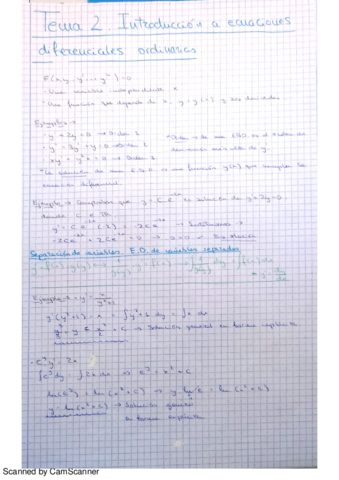 Tema 2. Introducción a ecuaciones
diferenciales ordinarias
F(x, y, y', ..., yⁿ) = 0
- Una variable independiente x
- Una función que depende de x, y = y(x) y sus derivadas
Ejemplos →
- y' + 2y = 0 → Orden 1
de una E.D.O. es el orden de
derivada más alta de y.
- La solución de una E.D.O. es una función y(x) que cumple la
ecuación diferencial.
Ejemplo → Comprobar que y = C e^-2x es solución de y' + 2y = 0
y' = C e^-2x (-2) = -2C e^-2x → Sustituimos →
-2C e^-2x + 2C e^-2x = 0 → 0 = 0 ✓ Es solución
Separación de variables. E.D. de variables separables
Ejemplo → y' = x/(y²+1)
y'(y²+1) = x → ∫ y²+1 dy = ∫ x dx
y³/3 + y = x²/2 + C → Solución general en forma implícita
- e^y y' = 2x
∫ e^y dy = ∫ 2x dx → e^y = x² + C
ln(e^y) = ln(x² + C) → y · ln e = ln(x² + C)
y = ln(x² + C) → Solución general
en forma explícita
Scanned by CamScanner